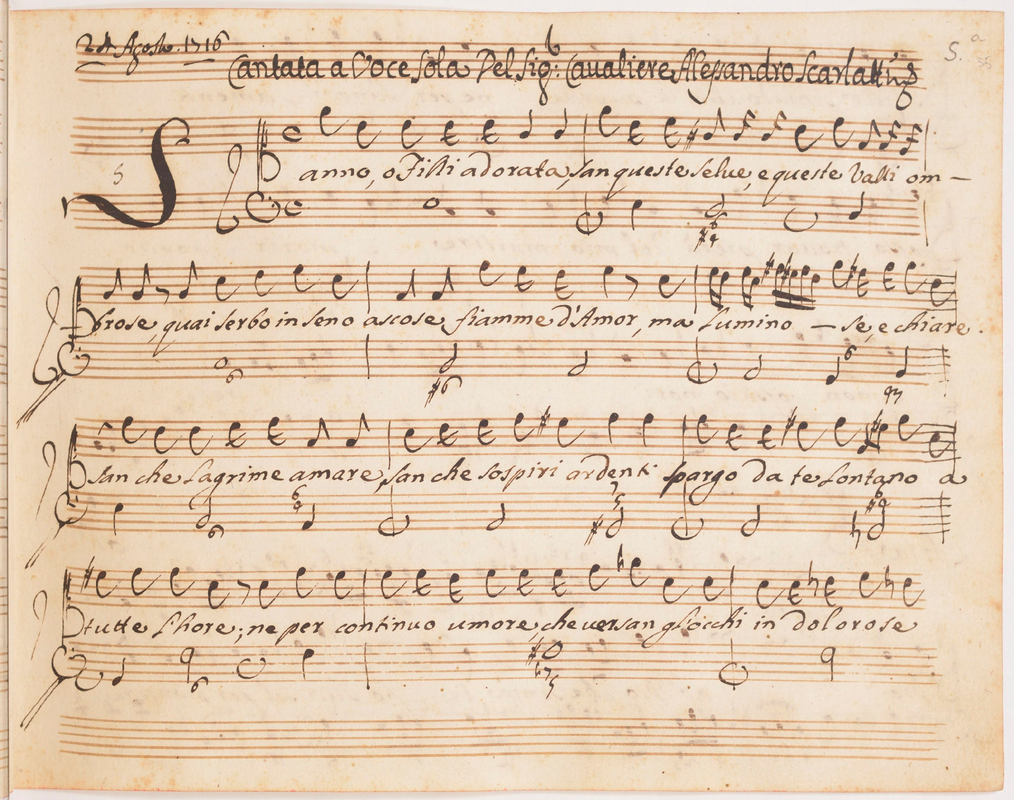 24 Agosto. 1716
Cantata a Voce Sola Del Sig: Caualiere Alessandro Scarlatti
5. a
5
S anno, o Filli adorata, san queste selue, e queste Valli om-
brose, quai serbo in seno ascose fiamme d'Amor, ma lumino-se, e chiare.
san che lagrime amare, san che sospiri ardenti spargo da te lontano a
tutte l'hore; ne per continuo umore, che uersan gl'occhi in dolorose